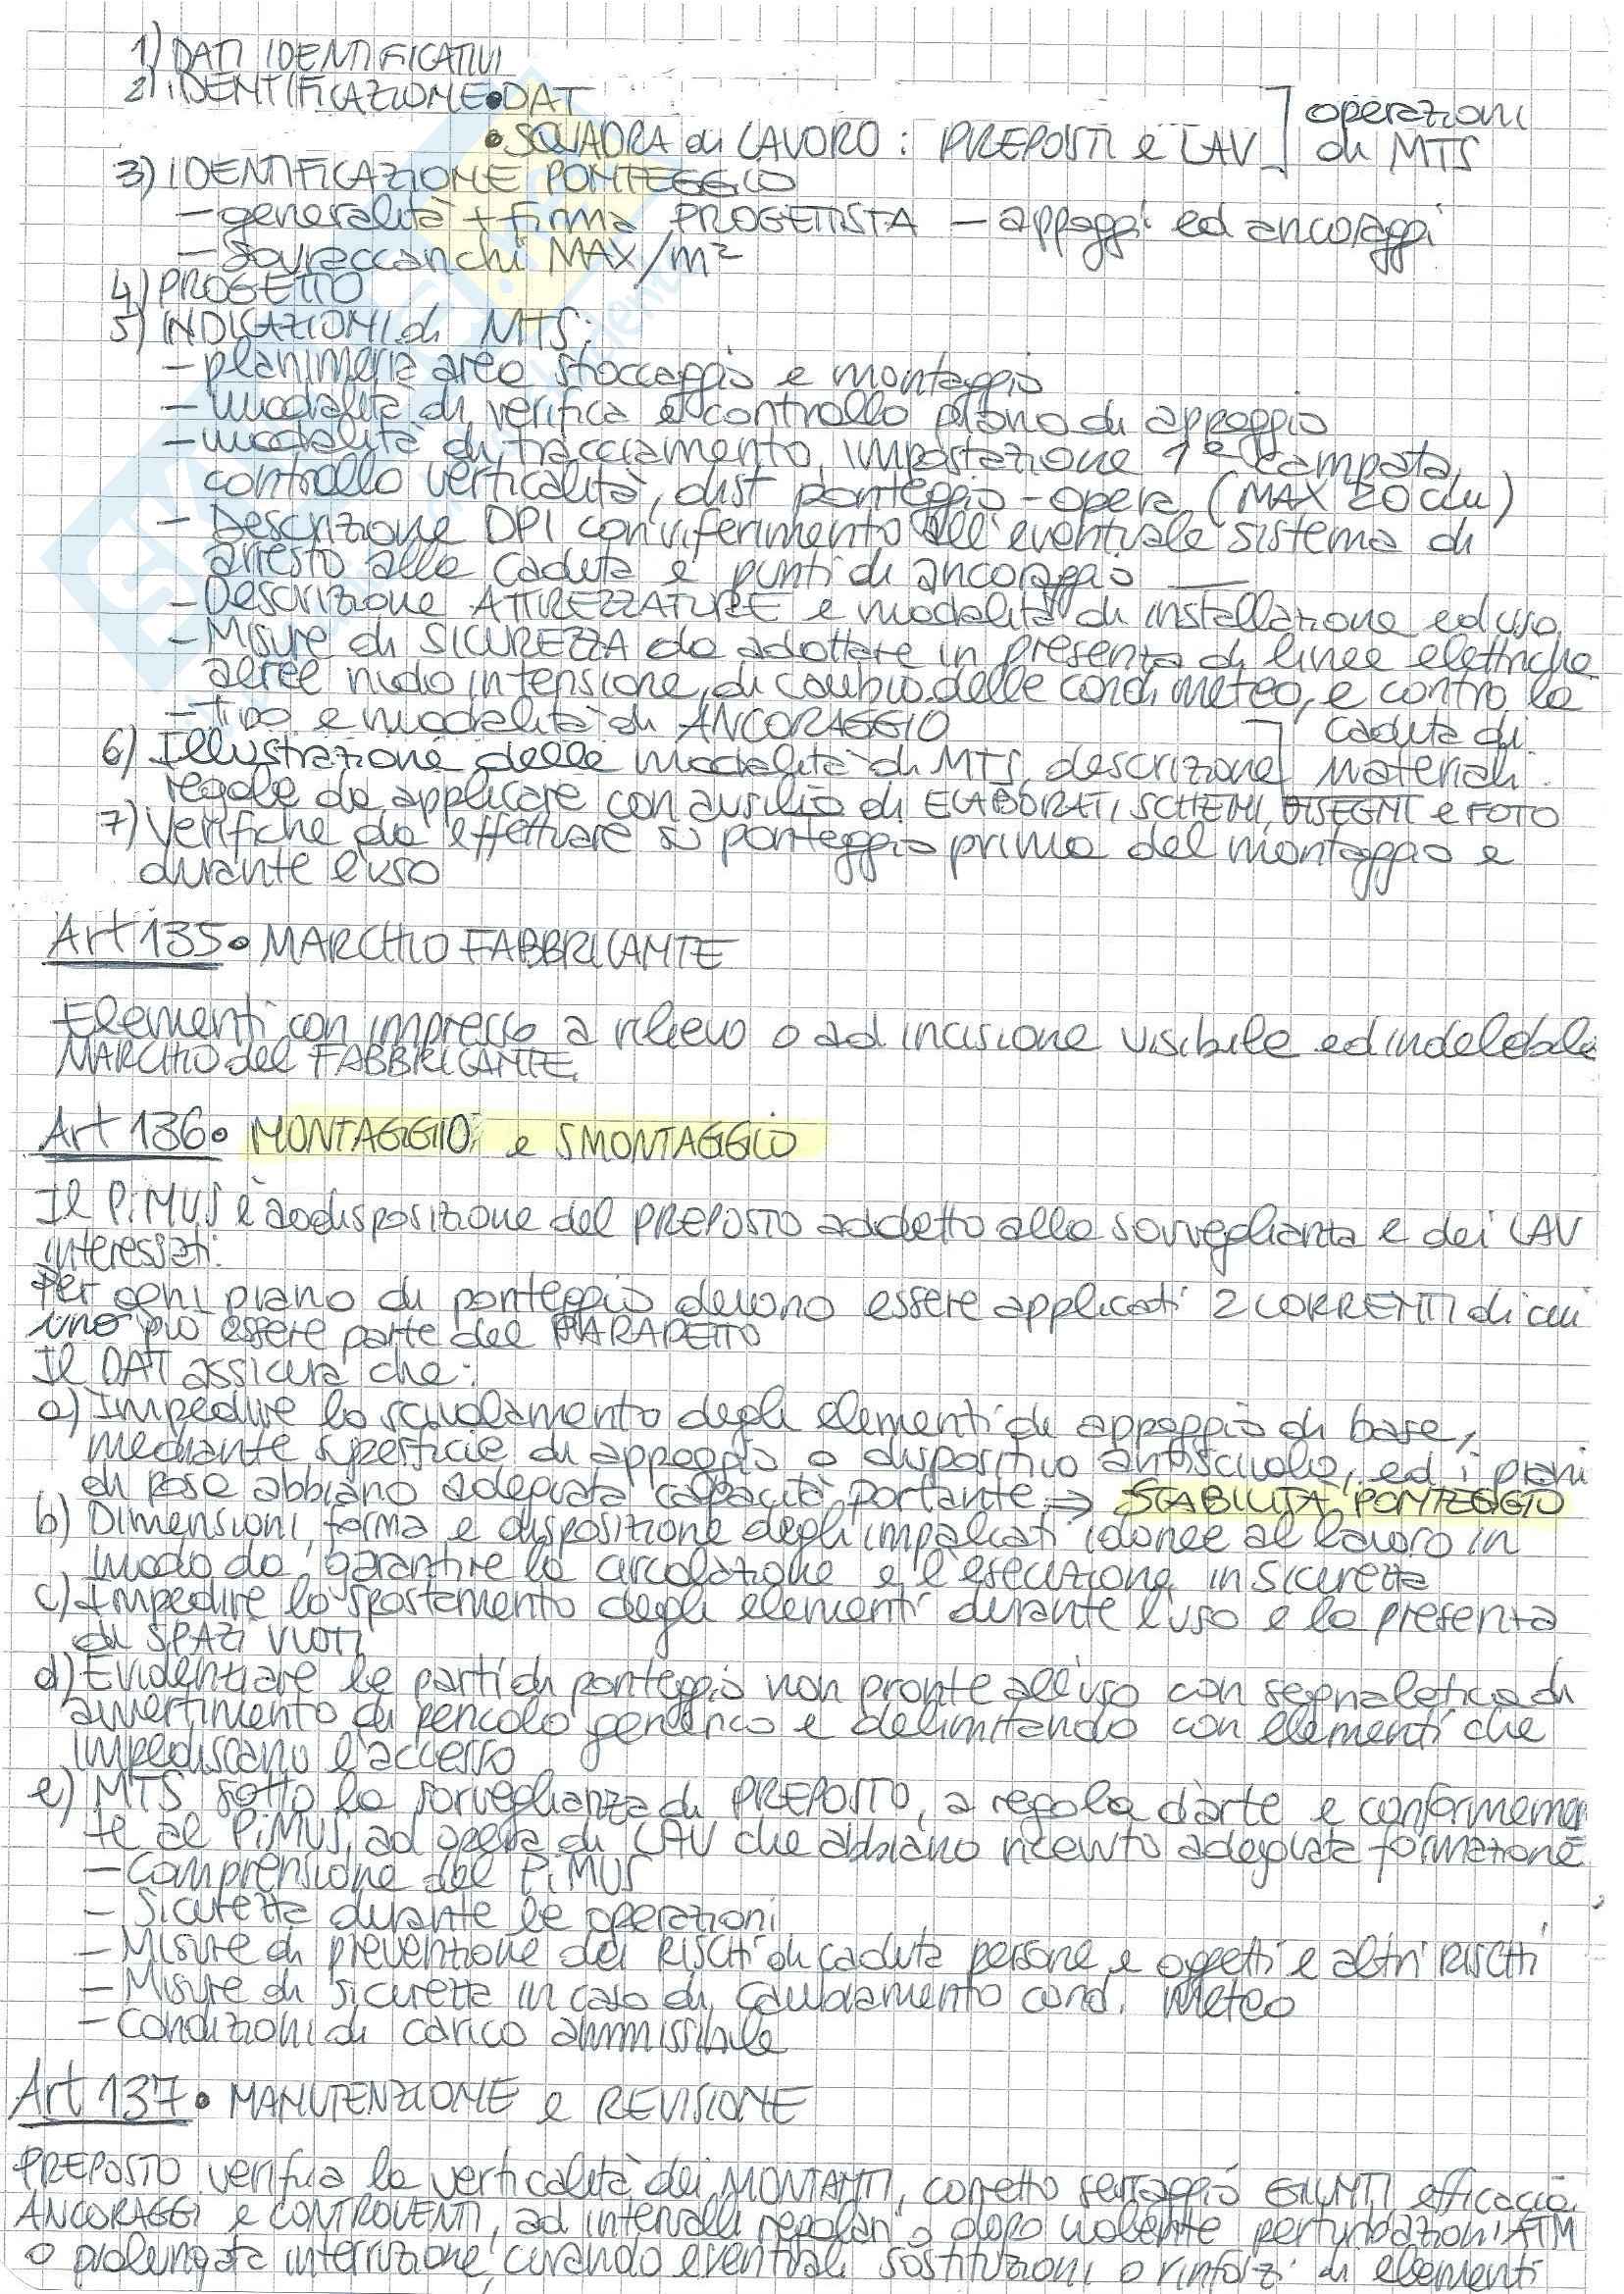 1) DATI IDENTIFICATIVI
2) IDENTIFICAZIONE • DAT
• SQUADRA di LAVORO : PREPOSTI e LAV ] operazioni di MTS
3) IDENTIFICAZIONE PONTEGGIO
- generalità + firma PROGETTISTA - appoggi ed ancoraggi
- sovraccarichi MAX/m²
4) PROGETTO
5) INDICAZIONI di MTS:
- planimetria aree stoccaggio e montaggio
- modalità di verifica e controllo piano di appoggio
- modalità di tracciamento, impostazione 1ª campata,
controllo verticalità, dist ponteggio - opera (MAX 20 cm)
- Descrizione DPI con riferimento all'eventuale sistema di
arresto alle caduta e punti di ancoraggio
- Descrizione ATTREZZATURE e modalità di installazione ed uso
- Misure di SICUREZZA da adottare in presenza di linee elettriche
aeree nudo in tensione, di cambio delle cond. meteo, e contro la
caduta di materiali.
- Tipo e modalità di ANCORAGGIO
6) Illustrazione delle modalità di MTS, descrizione
regole da applicare con ausilio di ELABORATI, SCHEMI, DISEGNI e FOTO
7) Verifiche da effettuare su ponteggio prima del montaggio e
durante l'uso
Art 135 • MARCHIO FABBRICANTE
Elementi con impresso a rilievo o ad incisione visibile ed indelebile
MARCHIO del FABBRICANTE.
Art 136 • MONTAGGIO e SMONTAGGIO
Il PiMUS è a disposizione del PREPOSTO addetto alla sorveglianza e dei LAV
interessati.
Per ogni piano di ponteggio devono essere applicati 2 CORRENTI di cui
uno può essere parte del PARAPETTO
Il DAT assicura che:
a) Impedire lo scivolamento degli elementi di appoggio di base,
mediante superficie di appoggio o dispositivo antiscivolo, ed i piani
di posa abbiano adeguata capacità portante ⇒ STABILITÀ PONTEGGIO
b) Dimensioni, forma e disposizione degli impalcati idonee al lavoro in
modo da garantire la circolazione e l'esecuzione in sicurezza
c) Impedire lo spostamento degli elementi durante l'uso e la presenza
di SPAZI VUOTI
d) Evidenziare le parti di ponteggio non pronte all'uso con segnaletica di
avvertimento di pericolo generico e delimitando con elementi che
impediscano l'accesso
e) MTS sotto la sorveglianza di PREPOSTO, a regola d'arte e conformemen
te al PiMUS, ad opera di LAV che abbiano ricevuto adeguata formazione
- Comprensione del PiMUS
- Sicurezza durante le operazioni
- Misure di prevenzione dei RISCHI di caduta persone e oggetti e altri RISCHI
- Misure di sicurezza in caso di cambiamento cond. meteo
- Condizioni di carico ammissibile
Art 137 • MANUTENZIONE e REVISIONE
PREPOSTO verifica la verticalità dei MONTANTI, corretto serraggio GIUNTI, efficacia
ANCORAGGI e CONTROVENTI, ad intervalli regolari o dopo violente perturbazioni ATM
o prolungata interruzione, curando eventuali sostituzioni o rinforzi di elementi